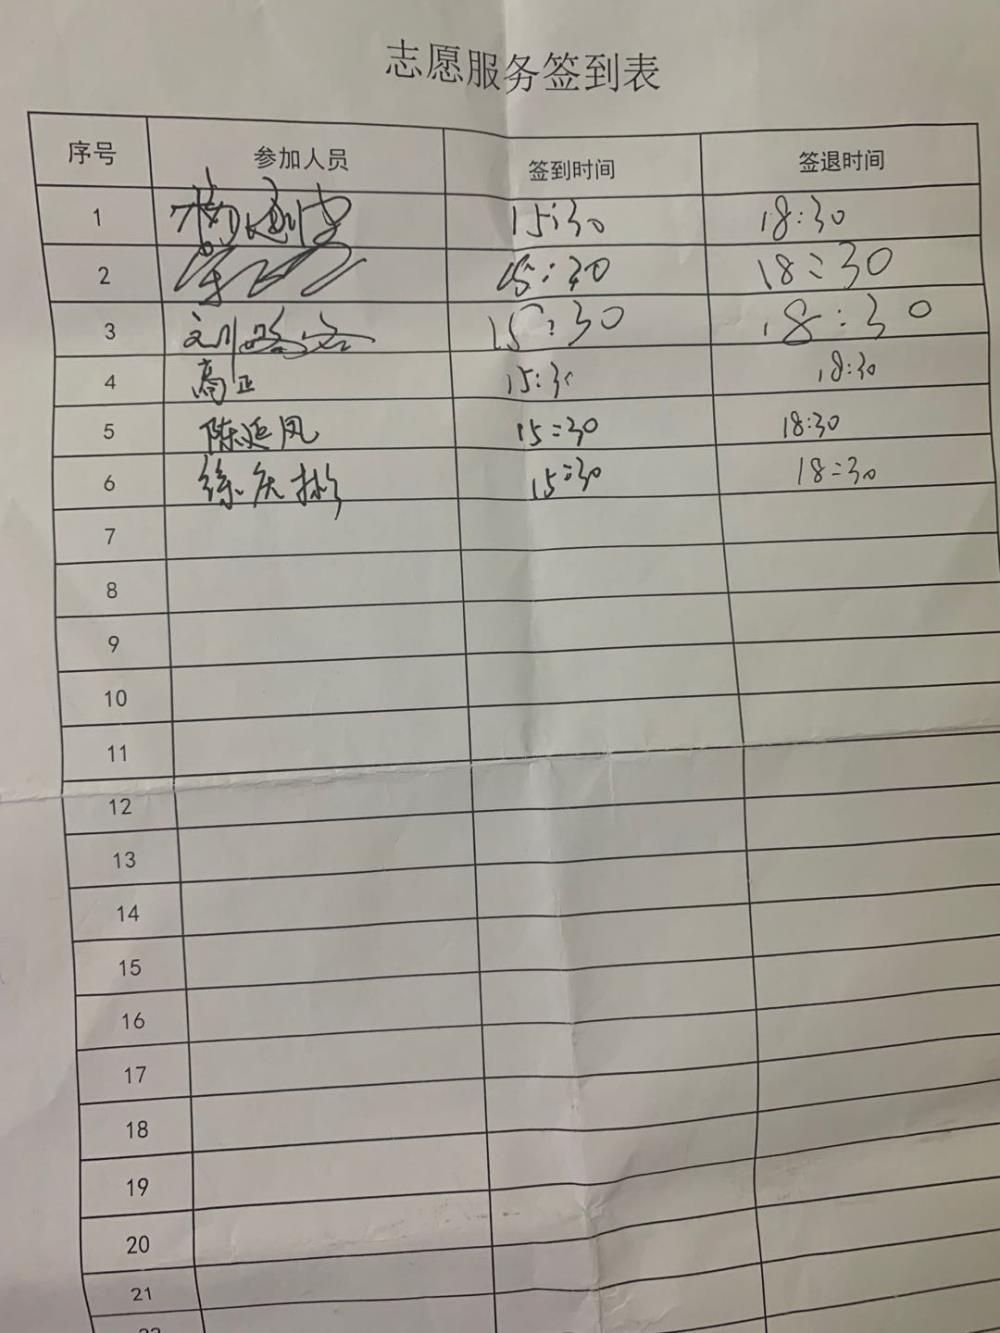 志愿服务签到表
序号 参加人员 签到时间 签退时间
1 15:30 18:30
2 15:30 18:30
3 刘 15:30 18:30
4 高正 15:30 18:30
5 陈延凤 15:30 18:30
6 徐庆彬 15:30 18:30
7
8
9
10
11
12
13
14
15
16
17
18
19
20
21